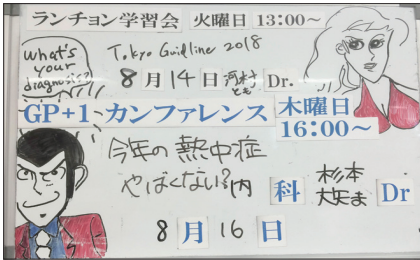 ランチョン学習会 火曜日 13:00～
what's your diagnosis?
Tokyo Guidline 2018
8月14日 河村とも Dr.
GP+1 カンファレンス 木曜日
16:00～
今年の熱中症
やばくない?内科 杉本 Dr
8月16日